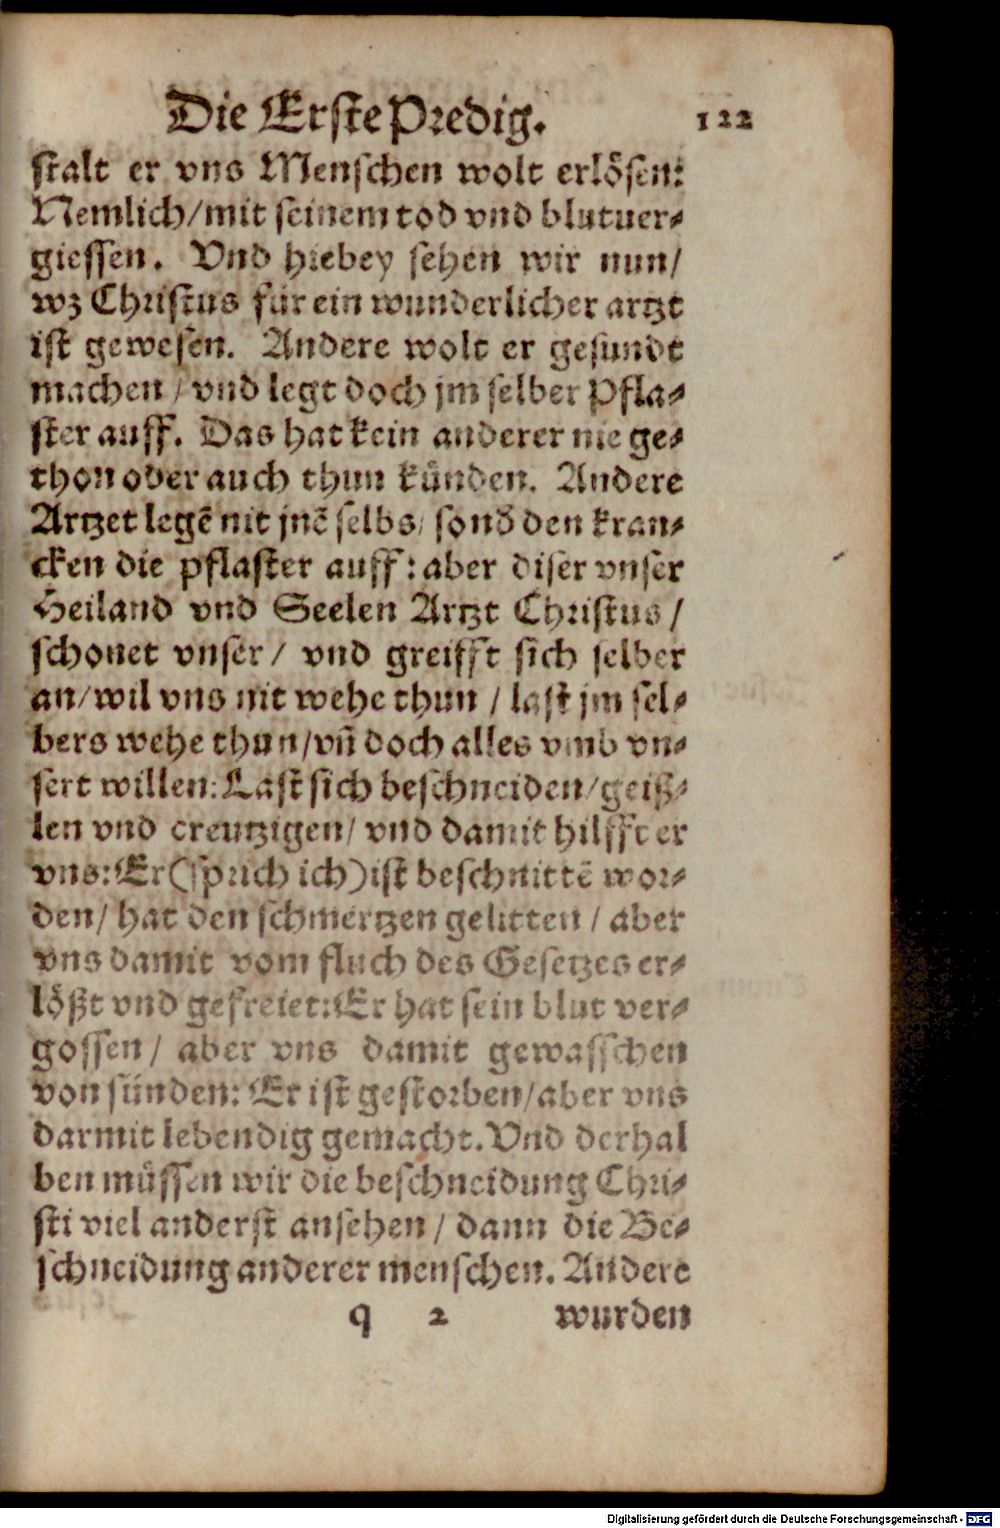 Die Erste Predig. 122
stalt er vns Menschen wolt erlösen:
Nemlich/mit seinem tod vnd blutuer-
giessen. Vnd hiebey sehen wir nun/
wz Christus für ein wunderlicher artzt
ist gewesen. Andere wolt er gesundt
machen / vnd legt doch jm selber Pfla-
ster auff. Das hat kein anderer nie ge-
thon oder auch thun künden. Andere
Artzet legē nit jnē selbs/ sond̄ den kran-
cken die pflaster auff: aber diser vnser
Heiland vnd Seelen Artzt Christus /
schonet vnser / vnd greifft sich selber
an/wil vns nit wehe thun / last jm sel-
bers wehe thun/vn̄ doch alles vmb vn-
sert willen: Last sich beschneiden/geiß-
len vnd creutzigen/ vnd damit hilfft er
vns: Er (sprich ich) ist beschnittē wor-
den/ hat den schmertzen gelitten / aber
vns damit vom fluch des Gesetzes er-
lößt vnd gefreiet: Er hat sein blut ver-
gossen/ aber vns damit gewasschen
von sünden: Er ist gestorben/aber vns
darmit lebendig gemacht. Vnd derhal
ben müssen wir die beschneidung Chri-
sti viel anderst ansehen / dann die Be-
schneidung anderer menschen. Andere
q 2 wurden
Digitalisierung gefördert durch die Deutsche Forschungsgemeinschaft - DFG